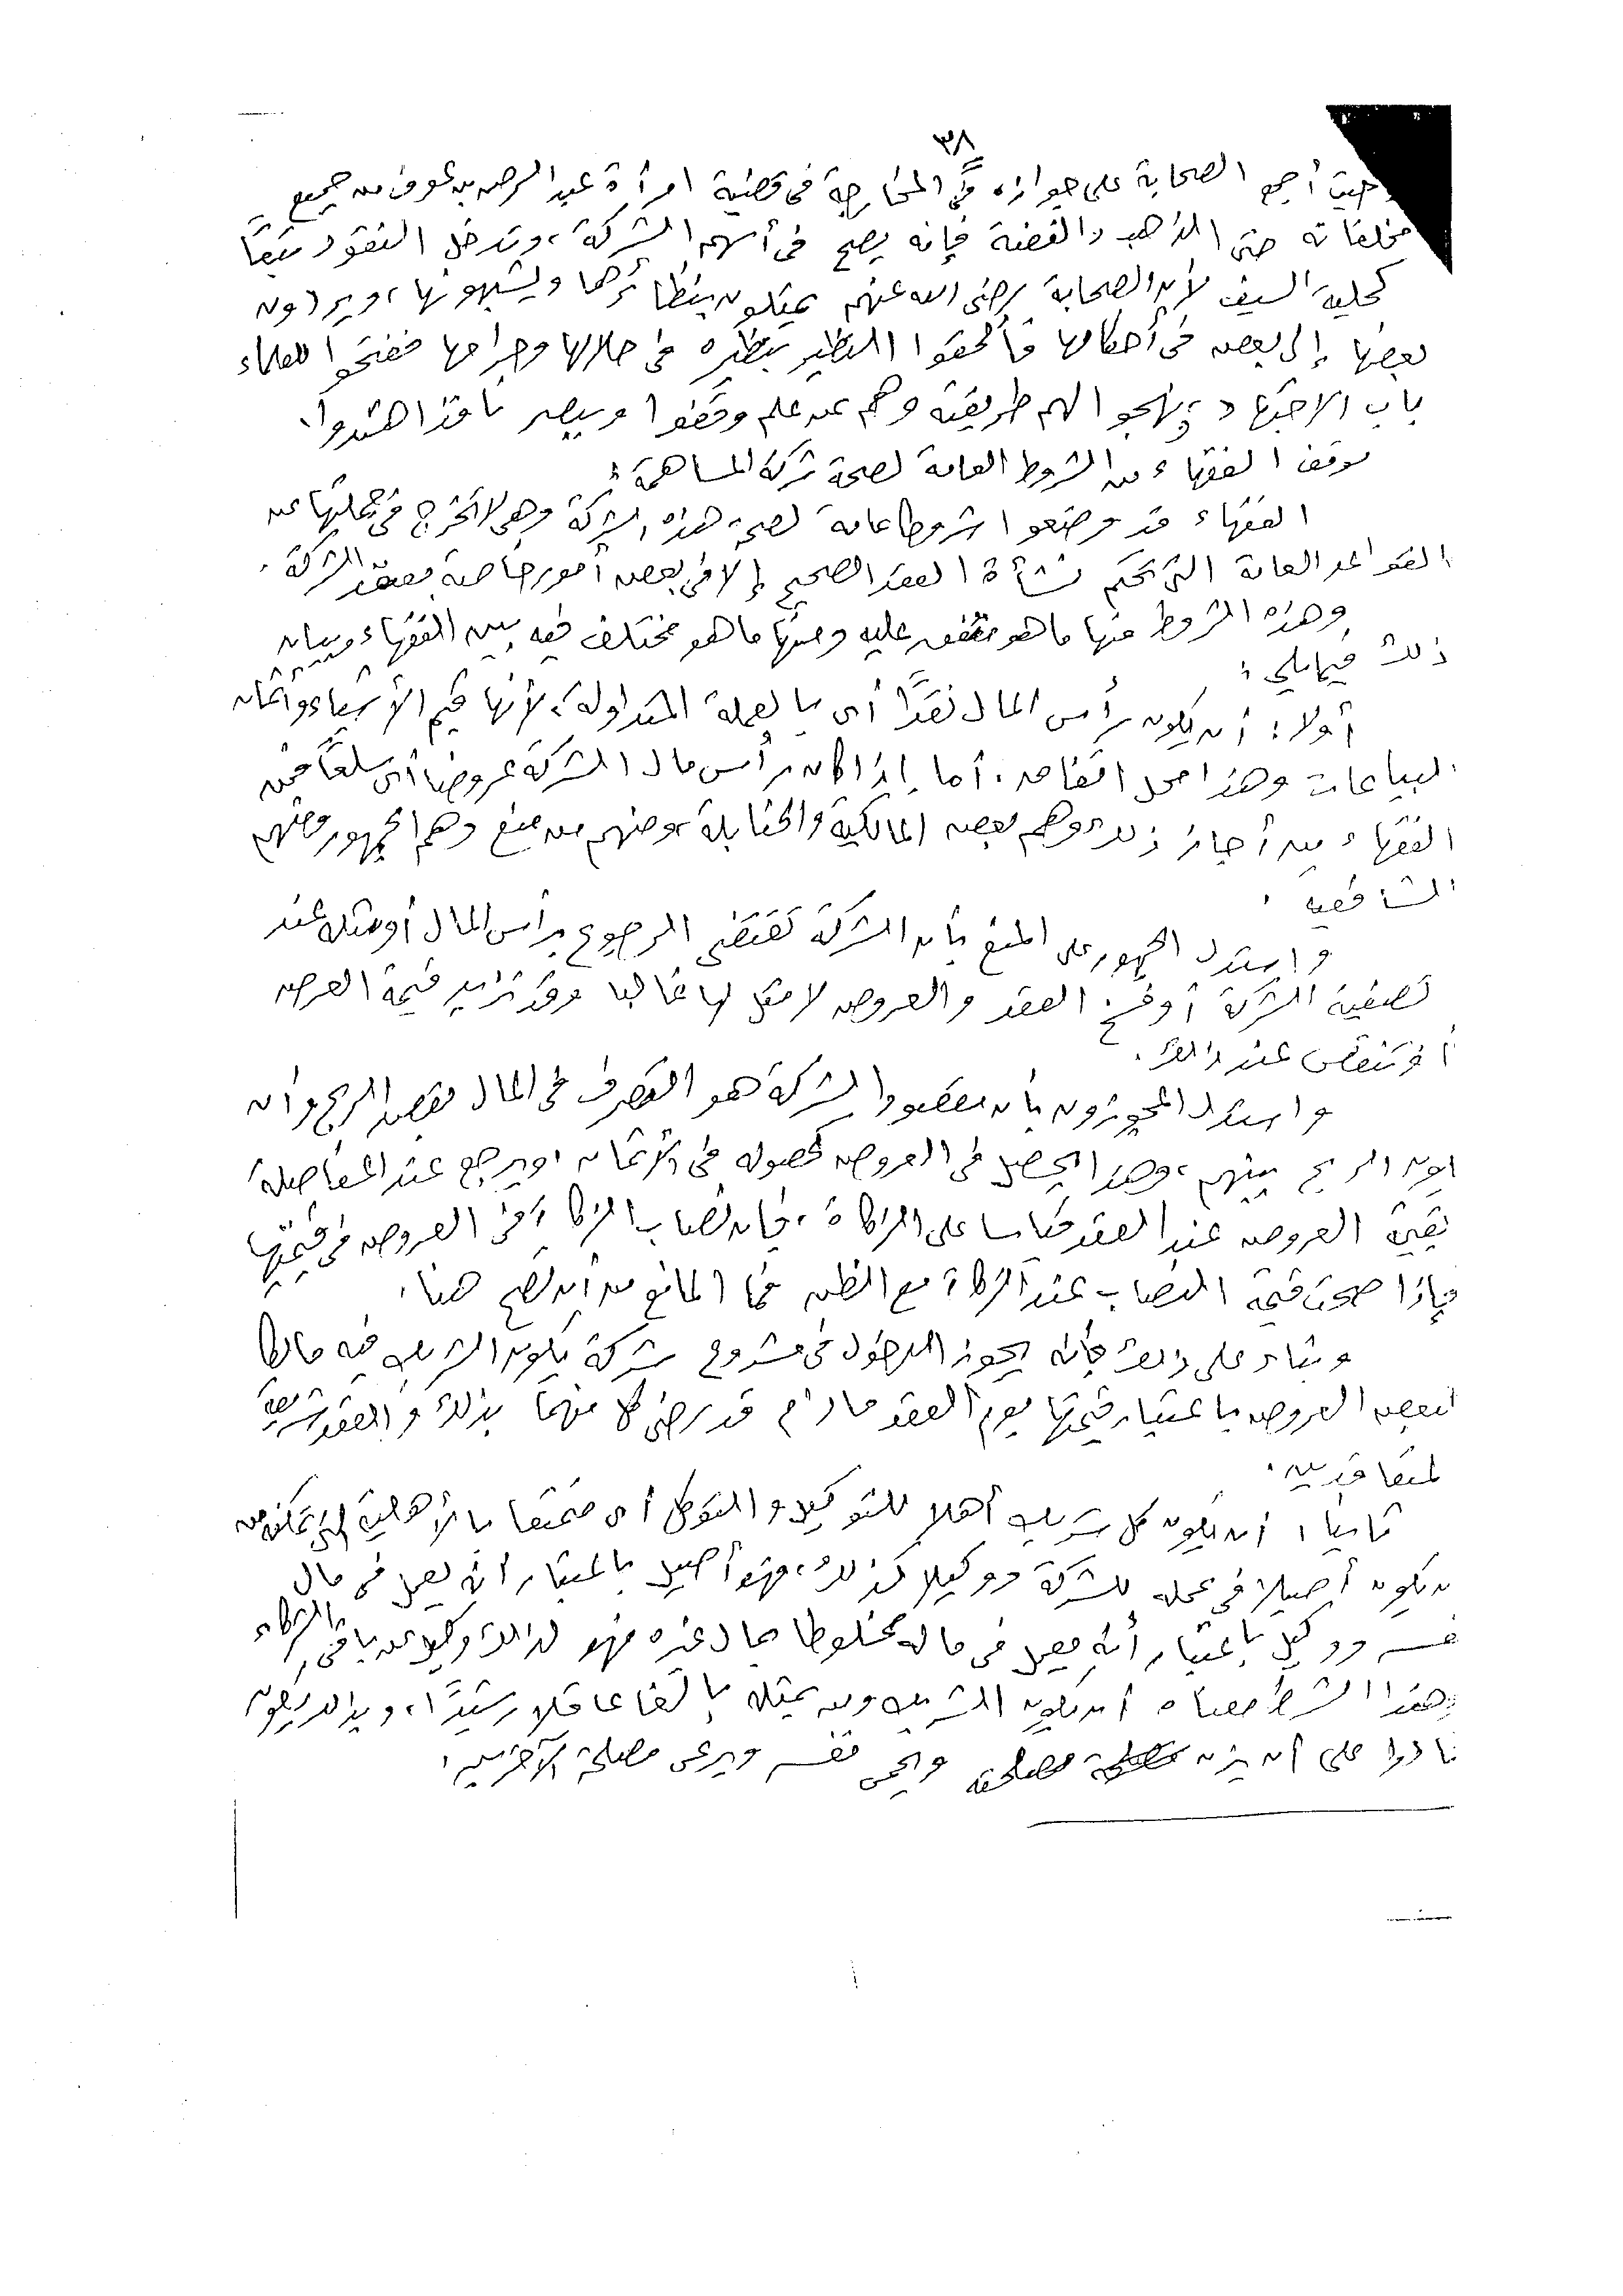 ٣٨
وحيث أجمع الصحابة على جوازه في المخارجة في قضية امرأة عبد الرحمن بن عوف من جميع
مخلفاته حتى الذهب والفضة فإنه يصح في أسهم الشركة، وتدخل النقود تبعًا
كحلية السيف لأن الصحابة رضي الله عنهم يمثلون بنظائرها ويشبهونها، ويردون
بعضها إلى بعض في أحكامها فألحقوا النظير بنظيره في حلالها وحرامها ففتحوا للعلماء
باب الاجتهاد ونهجوا لهم طريقته وهم عن علم وقفوا وببصر نافذ اهتدوا.
موقف الفقهاء من الشروط العامة لصحة شركة المساهمة:
الفقهاء قد وضعوا شروطا عامة لصحة هذه الشركة وهى لا تخرج في جملتها عن
القواعد العامة التى تحكم نشأة العقد الصحيح إلا في بعض أمور خاصة بعقد الشركة.
وهذه الشروط منها ما هو متفق عليه ومنها ما هو مختلف فيه بين الفقهاء وبيان
ذلك فيما يلي:
أولا: أن يكون رأس المال نقدًا أى بالعملة المتداولة، لأنها قيم الأشياء وأثمان
البياعات وهذا محل اتفاق. أما إذا كان رأس مال الشركة عروضا أى سلعًا فمن
الفقهاء من أجاز ذلك وهم بعض المالكية والحنابلة، ومنهم من منع وهم الجمهور ومنهم
الشافعية.
واستدل الجمهور على المنع بأن الشركة تقتضى الرجوع برأس المال أو مثله عند
تصفية الشركة أو فسخ العقد والعروض لا مثل لها غالبا وقد تزايد قيمة العرض
أو تنقص عند ذلك.
واستدل المجوزون بأن مقصود الشركة هو التصرف في المال بقصد الربح وأن
يكون الربح بينهم، وهذا يحصل في العروض كحصوله في الأثمان، ويرجع عند المفاصلة
بقيمة العروض عند العقد قياسا على الزكاة، فإن نصاب الزكاة في العروض في قيمتها
فإذا صحت قيمة النصاب عند الزكاة مع الظن فما المانع من أن تصح هنا.
وبناء على ذلك فإنه يجوز الدخول في مشروع شركة يكون الشريك فيه مالكا
لبعض العروض باعتبار قيمتها يوم العقد مادام قد رضى كل منهما بذلك والعقد شريعة
المتعاقدين.
ثانيا: أن يكون كل شريك أهلا للتوكيل والتوكل أى متمتعا بالأهلية التى تمكنه من
أن يكون أصيلا في عمله للشركة ووكيلا كذلك، فهو أصيل باعتبار أنه يعمل في مال
نفسه ووكيل باعتبار أنه يعمل في ماله مخلوطا بمال غيره فهو لذلك وكيل عن باقى الشركاء
وهذا الشرط معناه أن يكون الشريك ومن يمثله بالغا عاقلا رشيدًا، وبذلك يكون
قادرا على أن يزن مصلحته ويحمى نفسه ويرعى مصلحة الآخرين.